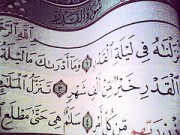 سُورَةُ القَدْرِ
اللَّهِ
فِي لَيْلَةِ القَدْرِ ١ وَمَا أَدْرَىٰكَ مَا لَيْلَةُ
القَدْرِ خَيْرٌ مِّنْ أَلْفِ شَهْرٍ ٣ تَنَزَّلُ
مِّن كُلِّ أَمْرٍ ٤ سَلَٰمٌ هِيَ حَتَّىٰ مَطْلَعِ